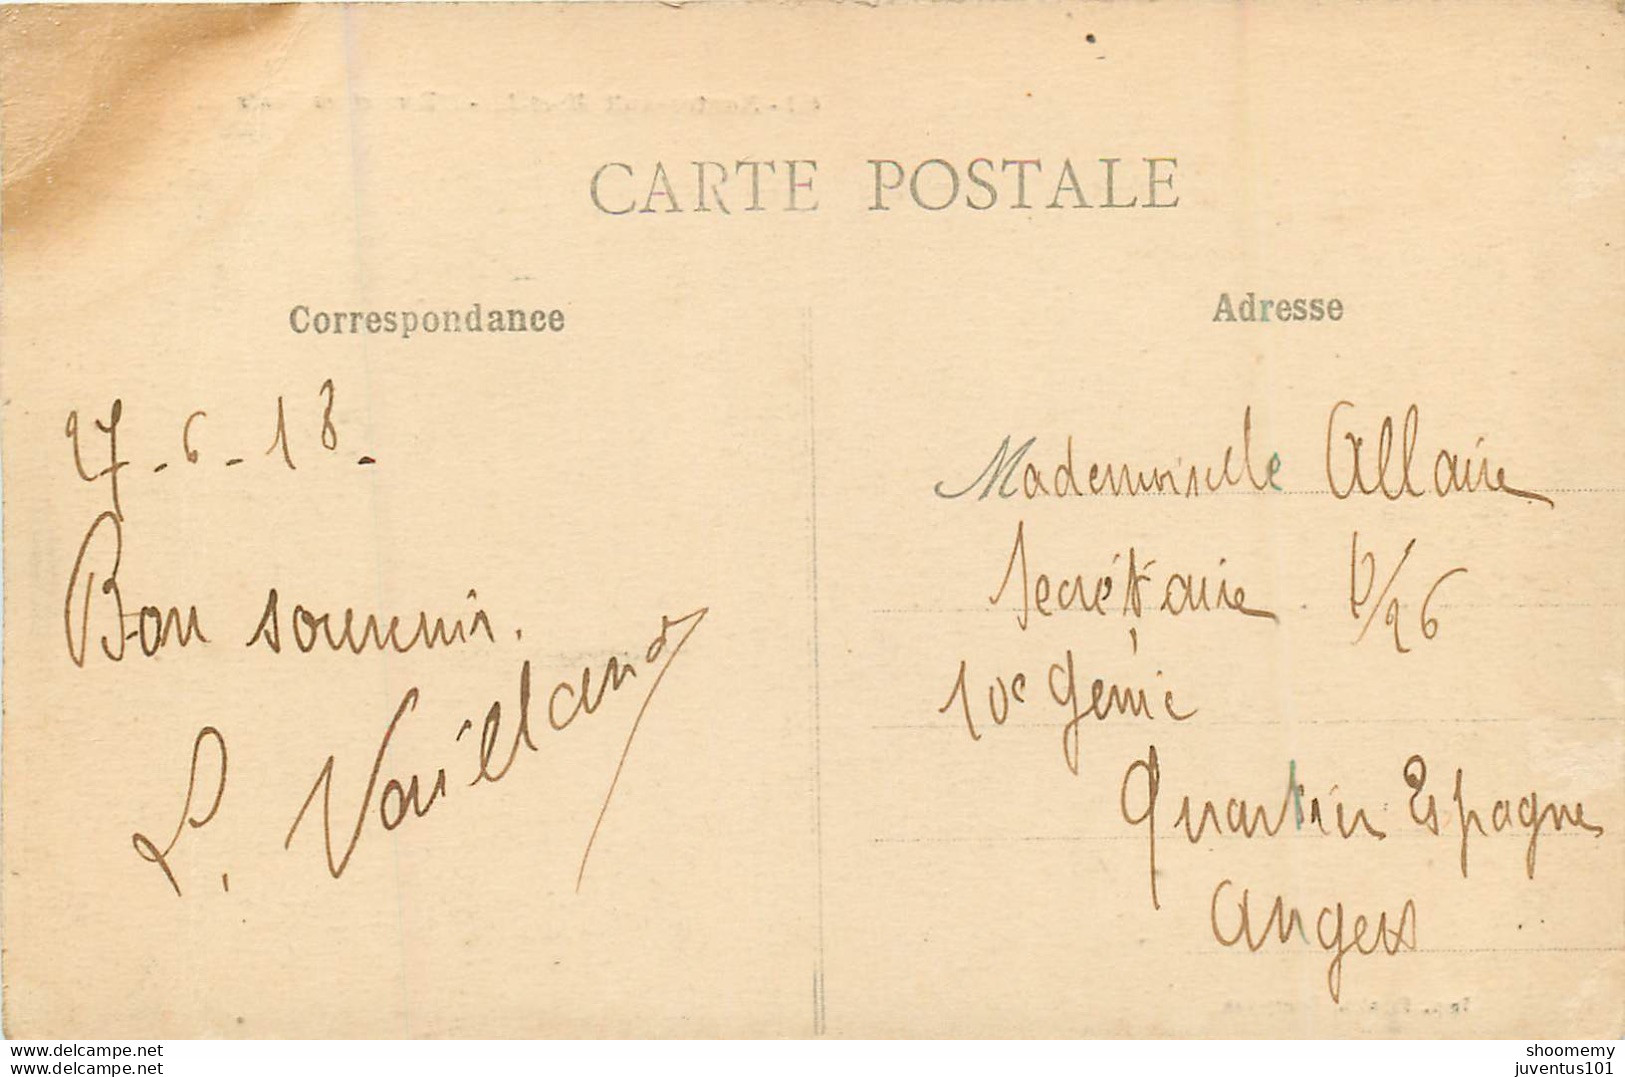 CARTE POSTALE
Correspondance
27-6-18-
Bon souvenir.
L. Vailland
Adresse
Mademoiselle Allaire
Secrétaire 6/26
10e Génie
Quartier Espagne
Angers
www.delcampe.net
shoomemy
juventus101